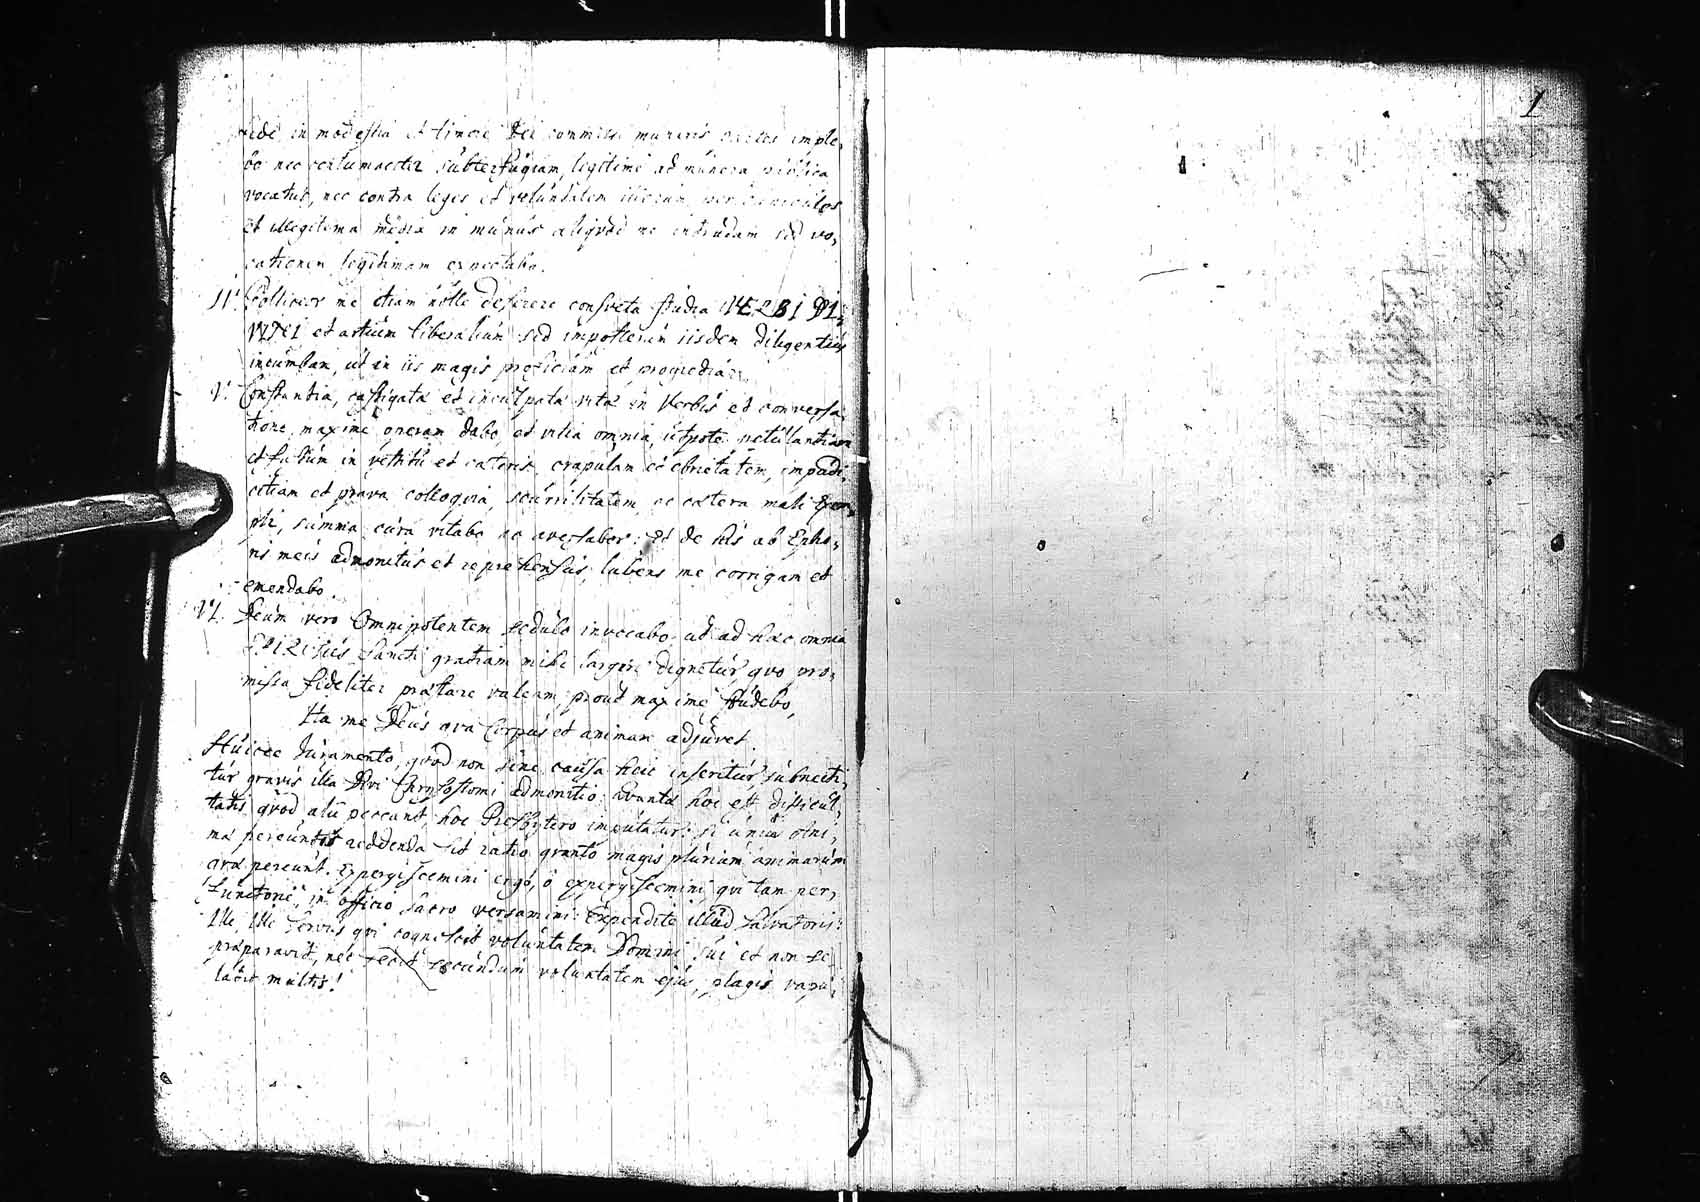 1
fide in modestia et timore Dei commissi muneris partes imple,
bo nec contumaciter subterfugiam, legitime ad munera publica
vocatus, nec contra leges et voluntatem illorum per cuniculos
et illegitima media in munus aliqvod me intrudam sed vo,
cationem legitimam expectabo.
Polliceor me etiam nolle deserere consveta studia VERBI DI,
VINI et artium liberalium sed imposterum iisdem diligentius
incumbam, ut in iis magis proficiam et progrediar.
V. Constantia, castigata et inculpata vita in verbis et conversa,
tione maxime operam dabo, et vitia omnia, utpote petulantiam
et fastum in vestitu et cæteris, crapulam et ebrietatem, impudi,
citiam et prava colloqvia, scurrilitatem ac cætera mali Exem,
pli, summa cura vitabo ac aversabor: et de his ab Epho,
ris meis admonitus et reprehensus, lubens me corrigam et
emendabo.
VI. Deum vero Omnipotentem sedulo invocabo ut ad hæc omnia
SPIRitus Sancti gratiam mihi largiri dignetur, qvo pro,
missa fideliter præstare valeam, prout maxime studebo,
Ita me Deus qva Corpus et animam adjuvet.
Huicce Juramento, qvod non sine causa heic inseritur subnecti,
tur gravis illa Divi Chrysostomi admonitio: Qvantæ hoc est difficul,
tatis qvod alii peccant, hoc Presbytero imputatur: si unius
ma pereuntis reddenda sit ratio qvanto magis plurium animarum
qvæ pereunt. Expergiscemini ergo, o expergiscemini qvi tam per,
functorie in officio sacro versamini: Expendite illud Salvatoris:
Ille Ille Servus qvi cognoscit voluntatem Domini sui et non se
præparavit, nec fecit secundum voluntatem ejus, plagis vapu,
labit multis!